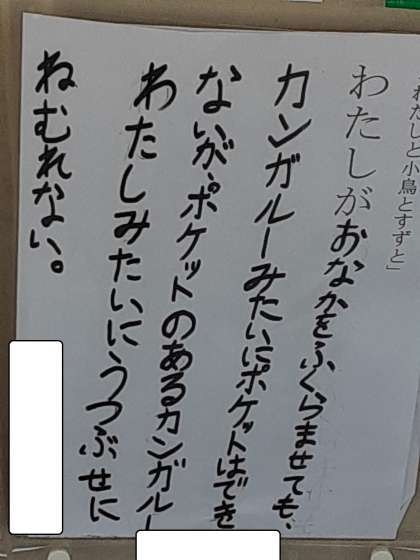 わたしと小鳥とすずと」
わたしがおなかをふくらませても、
カンガルーみたいにポケットはでき
ないが、ポケットのあるカンガルー
わたしみたいにうつぶせに
ねむれない。